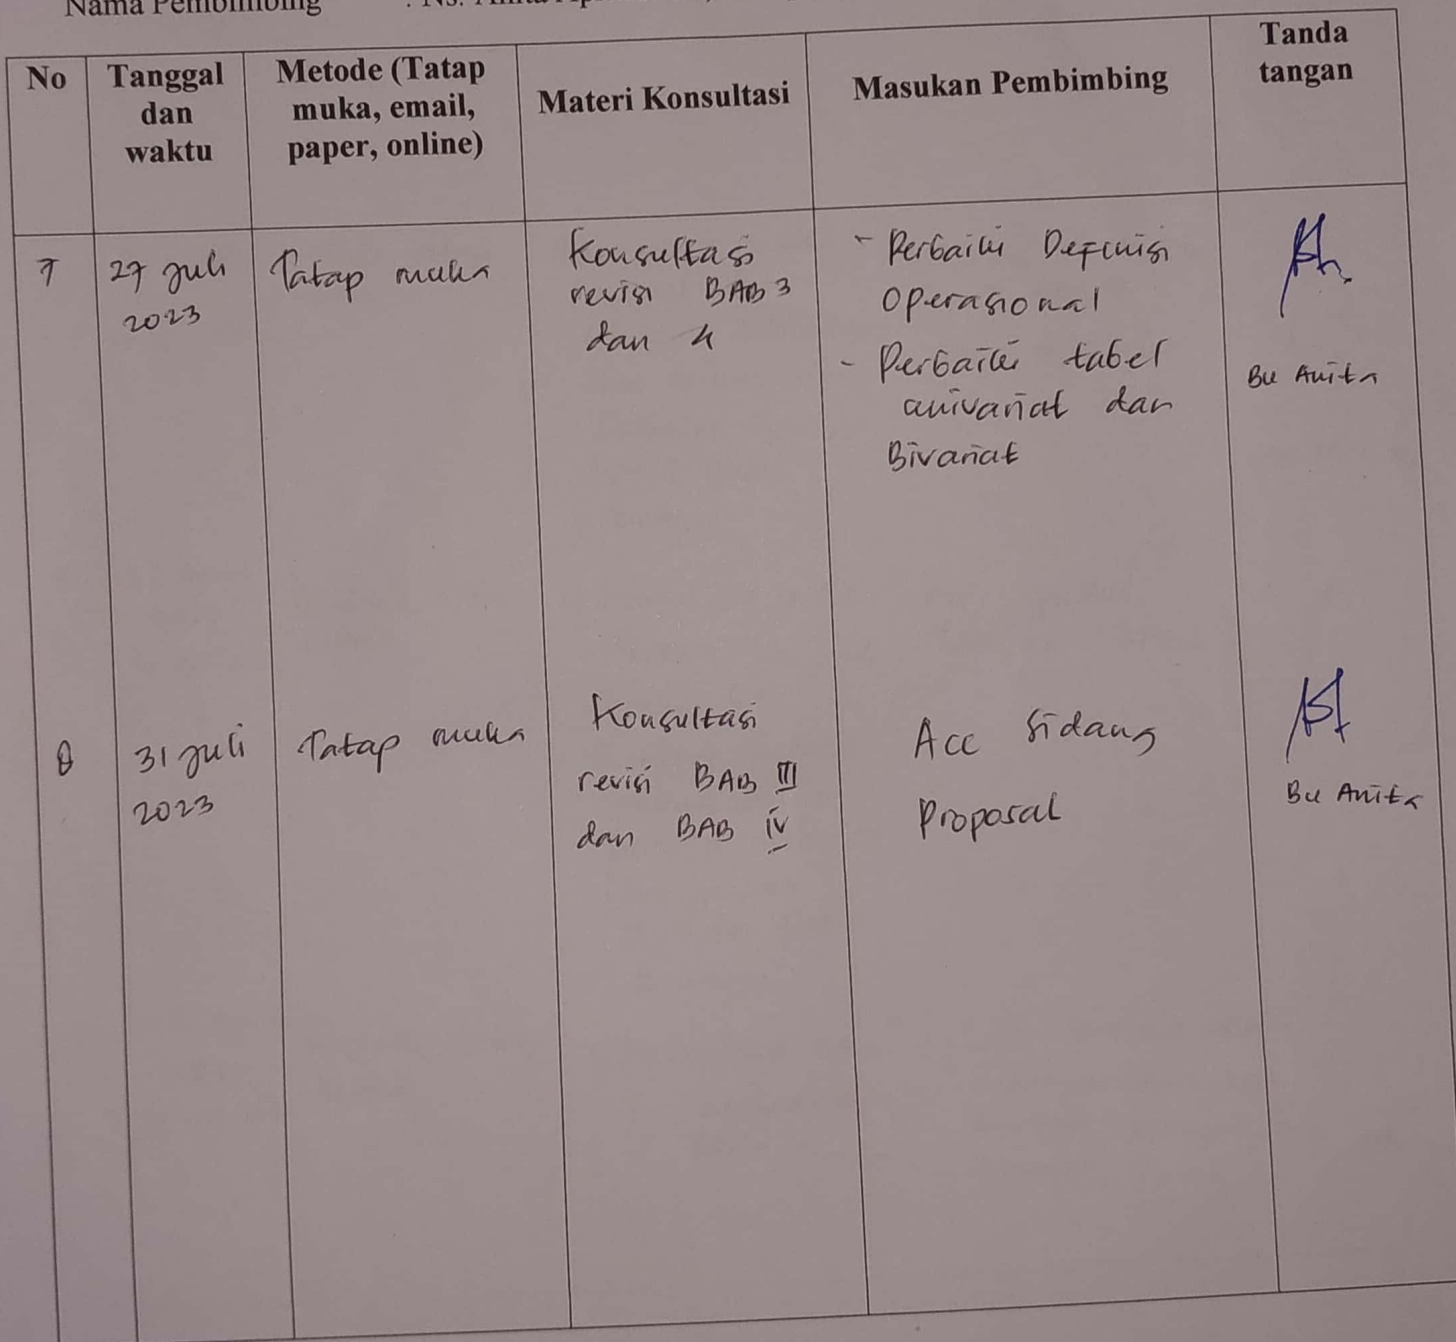 Nama Pembimbing : Ns.
No
Tanggal
dan
waktu
Metode (Tatap
muka, email,
paper, online)
Materi Konsultasi
Masukan Pembimbing
Tanda
tangan
7
27 Juli
2023
Tatap muka
Konsultasi
revisi BAB 3
dan 4
- Perbaiki Definisi
Operasional
- Perbaiki tabel
univariat dan
Bivariat
Bu Anita
8
31 Juli
2023
Tatap muka
Konsultasi
revisi BAB III
dan BAB IV
Acc Sidang
Proposal
Bu Anita